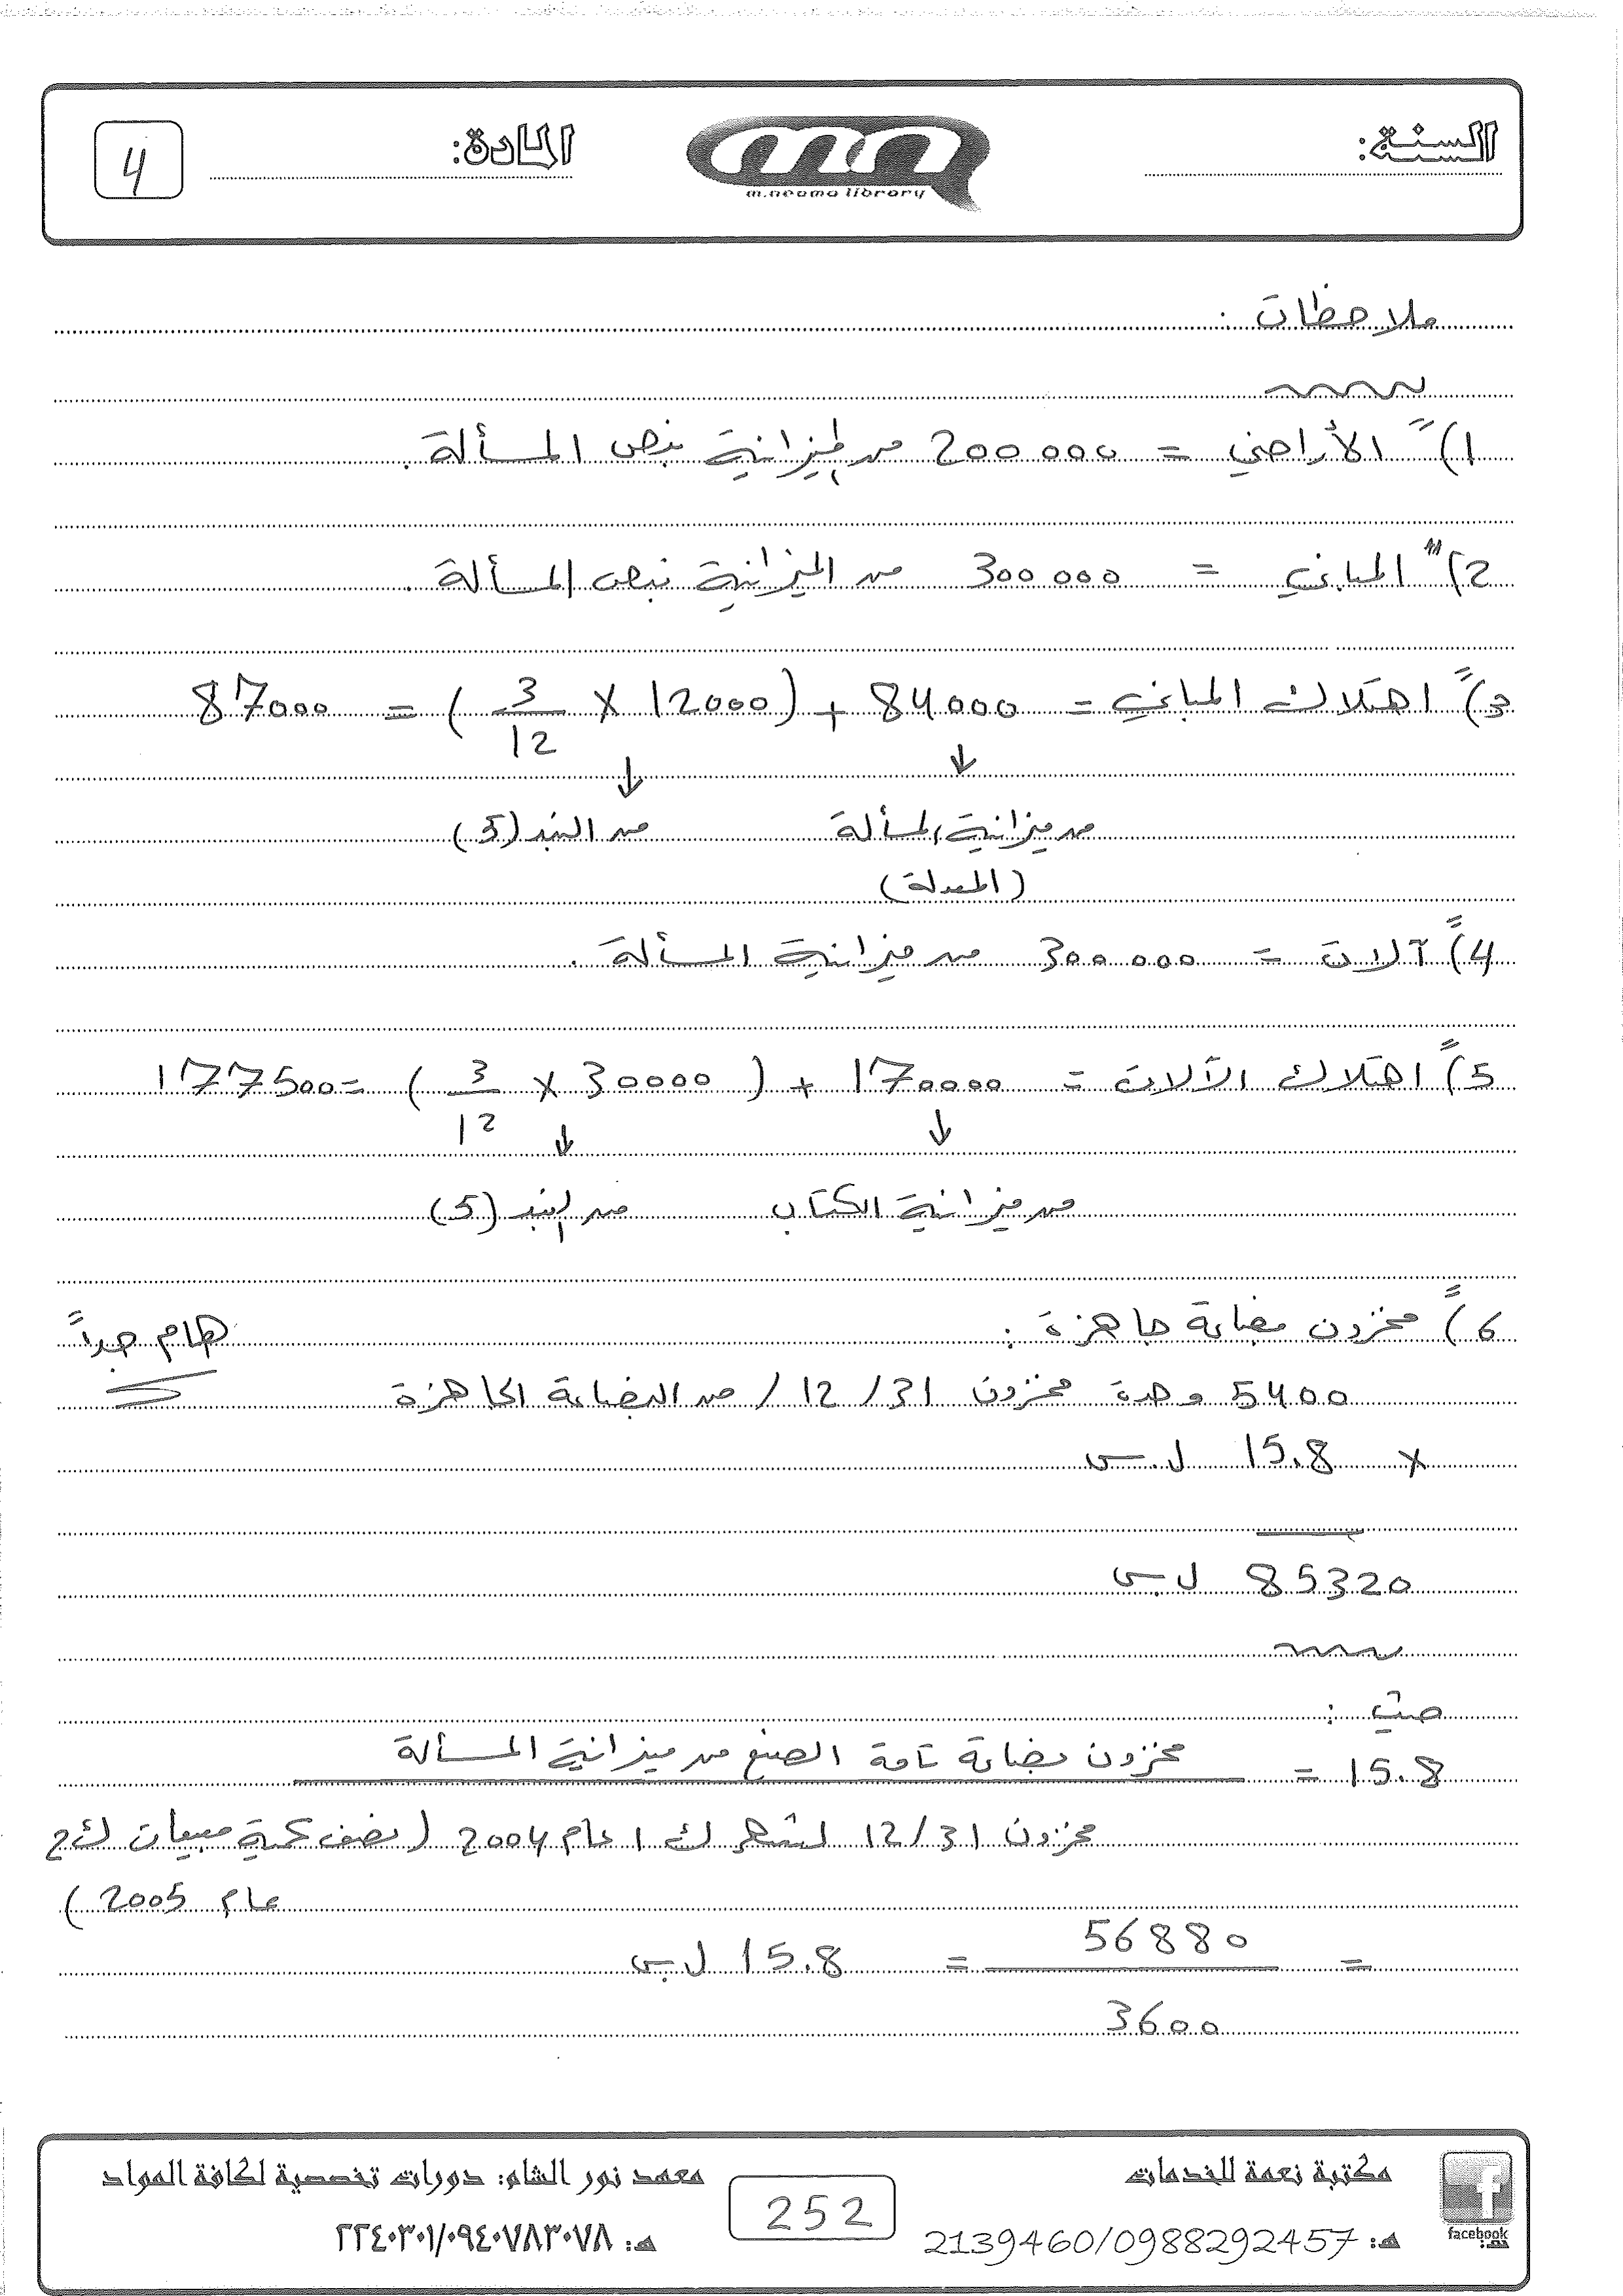 السنة:
m.neama library
المادة:
4
ملاحظات :
1) الأراضي = 200 000 من الميزانية بنص المسألة .
2) المباني = 300 000 من الميزانية بنص المسألة .
3) اهتلاك المباني = 84000 + (12000 × 3/12) = 87000
من ميزانية المسألة من البند (5)
(المعدلة)
4) آلات = 300 000 من ميزانية المسألة .
5) اهتلاك الآلات = 170000 + (30000 × 3/12) = 177500
من ميزانية الكتاب من البند (5)
6) مخزون بضاعة جاهزة : هام جداً
5400 وحدة مخزون 31/12/ من البضاعة الجاهزة
× 15.8 ل.س
85320 ل.س
حيث :
15.8 = مخزون بضاعة تامة الصنع من ميزانية المسألة
مخزون 31/12 لشهر ك1 عام 2004 (نصف كمية مبيعات ك2
عام 2005)
= 56880 = 15.8 ل.س
3600
facebook
مكتبة نعمة للخدمات
هـ: 2139460/0988292457
252
معهد نور الشام: دورات تخصصية لكافة المواد
هـ: ٢٢٤٠٣٠١/٠٩٤٠٧٨٣٠٧٨